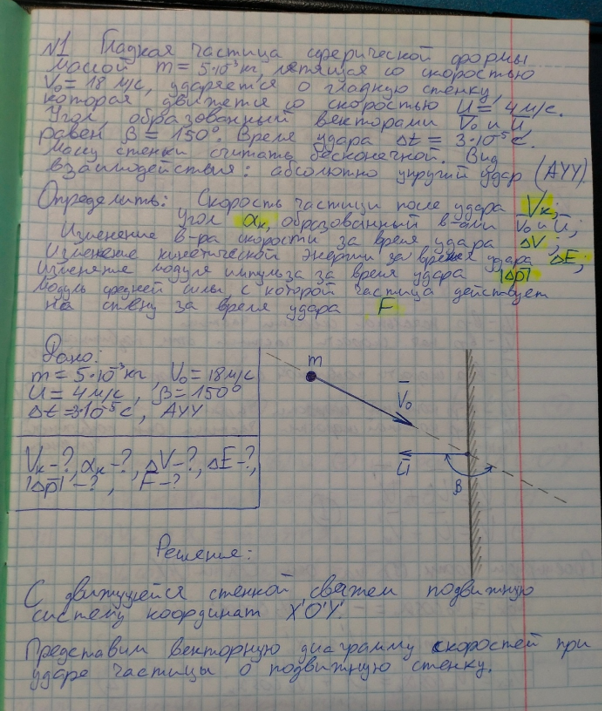 №1 Гладкая частица сферической формы
массой m = 5·10⁻³кг, летящая со скоростью
V₀ = 18 м/с, ударяется о гладкую стенку,
которая движется со скоростью U = 4 м/с.
Угол, образованный векторами V̅₀ и U̅,
равен β = 150°. Время удара Δt = 3·10⁻⁵ с.
Массу стенки считать бесконечной. Вид
взаимодействия: абсолютно упругий удар (АУУ)
Определить: Скорость частицы после удара Vк;
угол αк, образованный в-ами V̅₀ и U̅;
Изменение в-ра скорости за время удара ΔV;
Изменение кинетической энергии за время удара ΔE;
Изменение модуля импульса за время удара |Δp̅|
Модуль средней силы с которой частица действует
на стену за время удара F
Дано:
m = 5·10⁻³кг V₀ = 18м/с
U = 4 м/с, β = 150°
Δt = 3·10⁻⁵ с, АУУ
Vк-?, αк-?, ΔV-?, ΔE-?,
|Δp̅|-?, F-?
m
V̅₀
U̅
β
Решение:
С движущейся стенкой свяжем подвижную
систему координат X'O'Y'.
Представим векторную диаграмму скоростей при
ударе частицы о подвижную стенку.